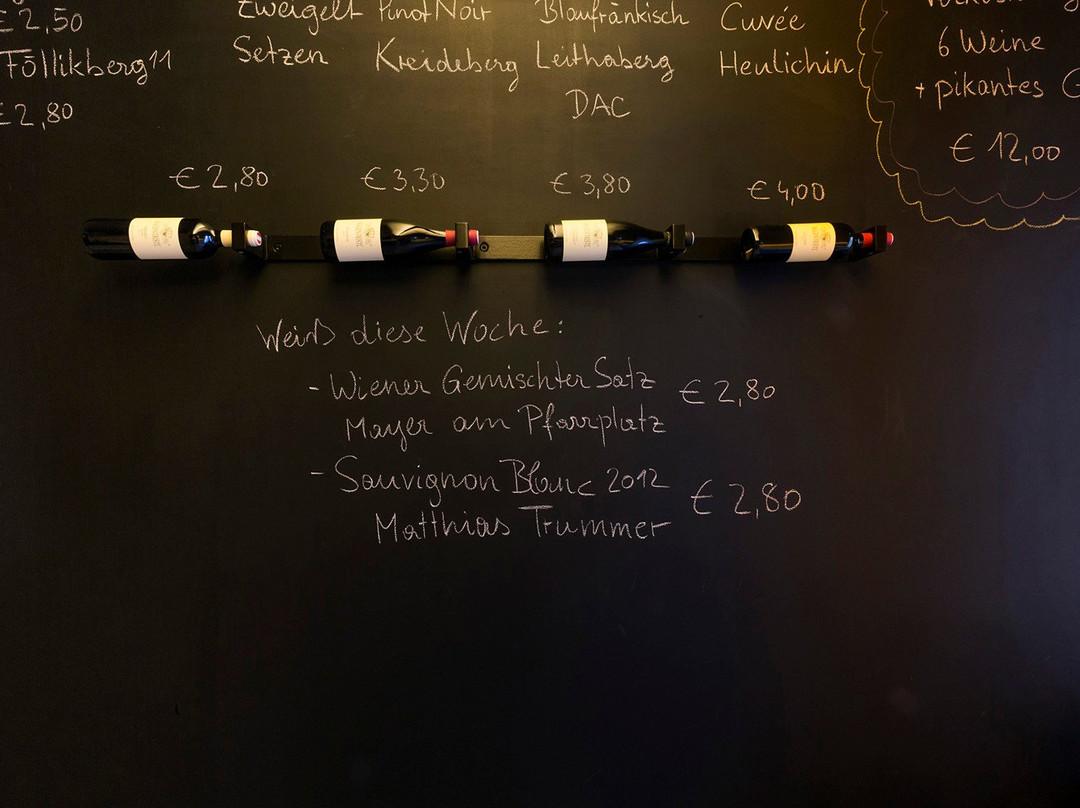 € 2,50
Föllikberg 11
€ 2,80
Zweigelt
Setzen
€ 2,80
Pinot Noir
Kreideberg
€ 3,30
Blaufränkisch
Leithaberg
DAC
€ 3,80
Cuvée
Heulichin
€ 4,00
6 Weine
+ pikantes
€ 12,00
Weiß diese Woche:
- Wiener Gemischter Satz € 2,80
Mayer am Pfarrplatz
- Sauvignon Blanc 2012 € 2,80
Matthias Trummer